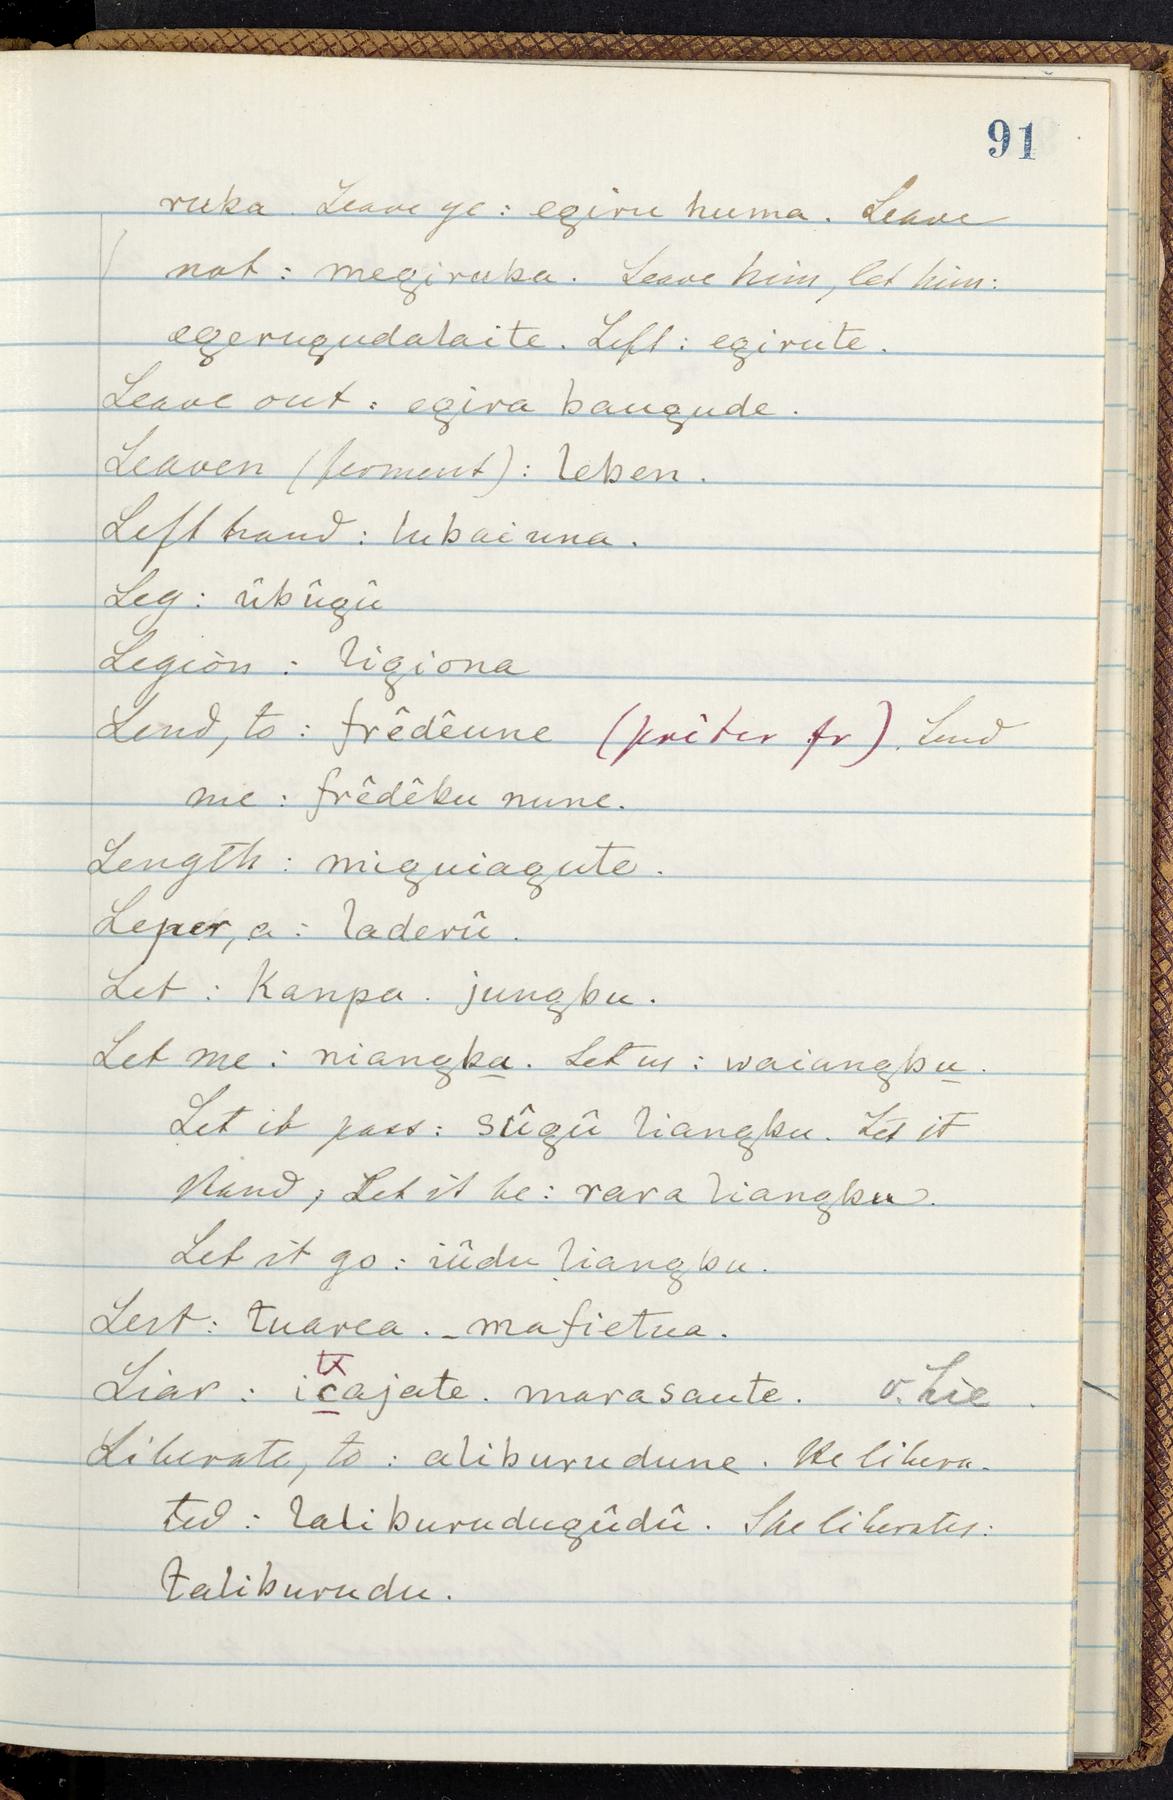 91
ruka. Leave ye: egiru huma. Leave
not: megiruka. Leave him, let him:
egerugudalaite. Left: egirute.
Leave out: egira baugude.
Leaven (ferment): leben.
Left hand: lubaiuna.
Leg: ûbûgû
Legion: ligiona
Lend, to: frêdêune (prêter fr). Lend
me: frêdêku nune.
Length: miguiagute.
Leper, a: laderû.
Let: Kanpa. jungku.
Let me: niangku. Let us: waiangku.
Let it pass: sûgû liangku. Let it
stand; Let it be: rara liangku.
Let it go: iûdu liangku.
Lest: tuarea. _mafietua.
tx
Liar: icajate. marasaute. v. Lie.
Liberate, to: aliburudune. He libera-
ted: laliburudugûdû. She liberates:
taliburudu.